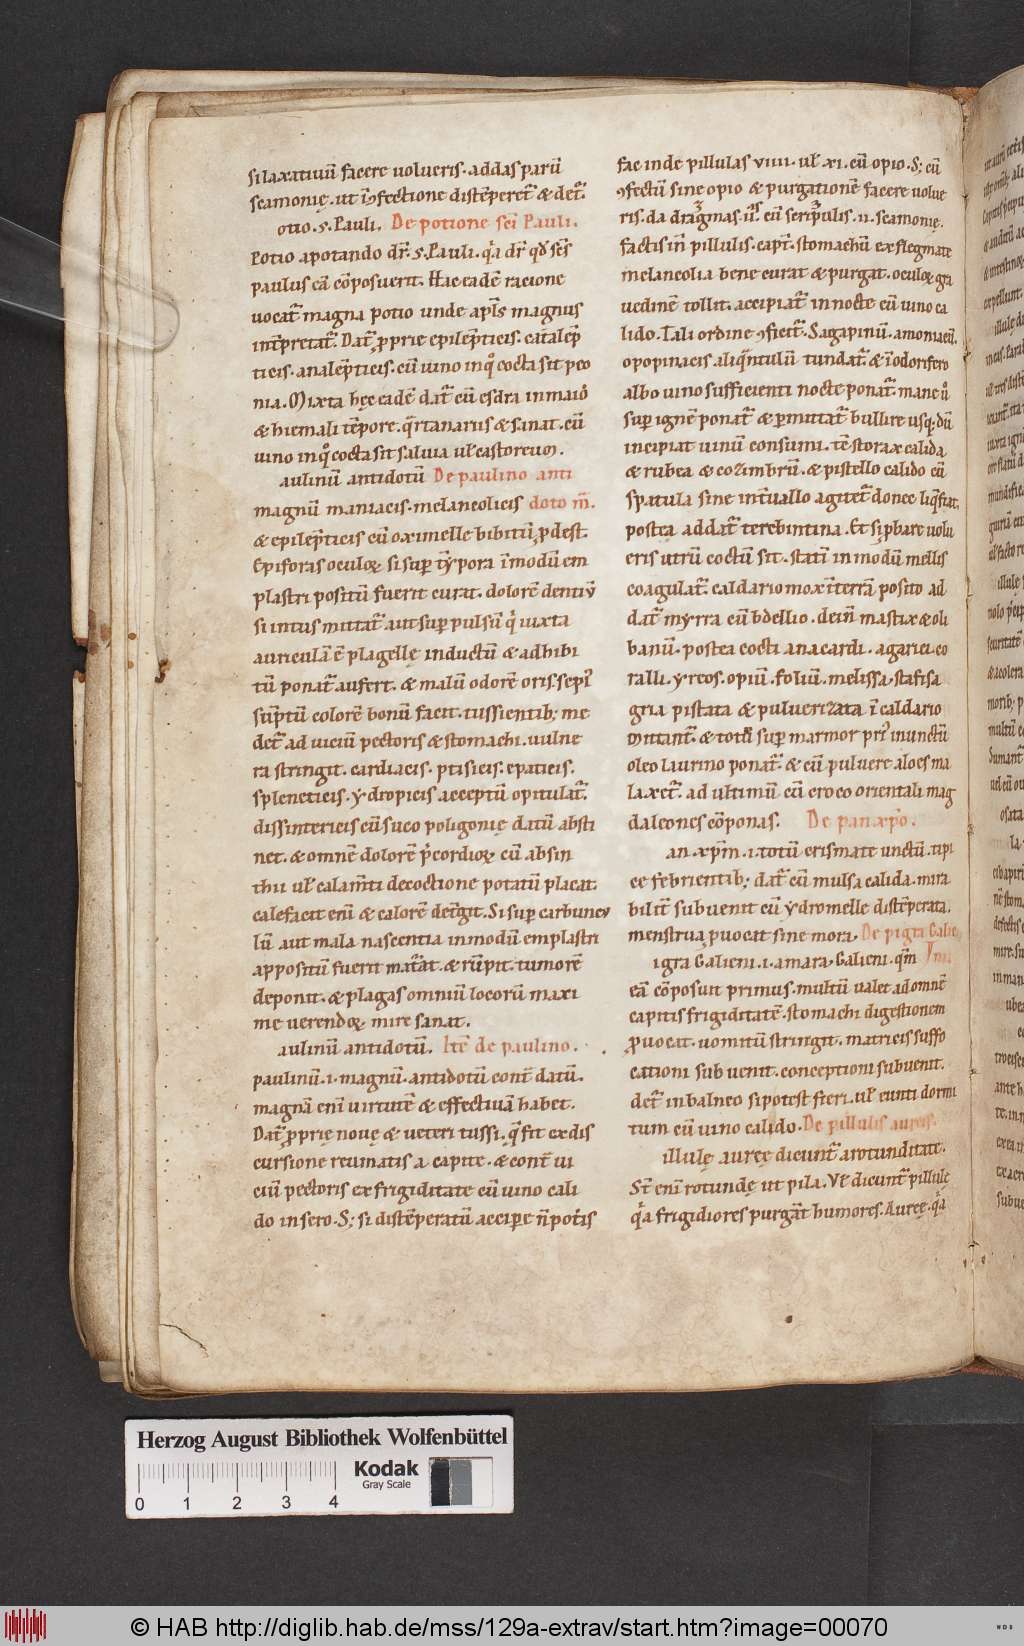 si laxativū facere volueris. addas parū
scamonię. ut ī ꝯfectione distēperet᷑ & det᷑.
otio. s. Pauli. De potione sc̄i Pauli.
Potio a potando dr̄. s. Pauli. q̓a dr̄ qđ sc̄s
paulus eā cōposuerit. Hac eadē racione
vocat᷑ magna potio unde apl̄s magnus
int̄pretat᷑. Dat᷑ ꝓprie epilēpticis. catalēp
ticis. analēpticis. cū uino inq̊ cocta sit peo
nia. Mixta hęc eadē dat᷑ cū esdra in maio
& hiemali tēpore. q̄rtanarios & sanat. cū
uino in q̊ cocta sit salvia ul̄ castoreum.
aulinū antidotū De paulino anti
magnū maniacis. melancolicis doto m̄.
& epilēpticis cū oximelle bibitū ꝓdest.
Epiforas oculoꝝ si suꝑ tȳpora ī modū em
plastri positū fuerit curat. dolorē dentiū
si intus mittat᷑ aut suꝑ pulsū q̓ iuxta
auriculā ē plagellę inductū & adhibi
tū ponat᷑ aufert. & malū odorē oris. sepi᷒
sūptū colorē bonū facit. tussientib; me
det᷑ ad viciū pectoris & stomachi. vulne
ra stringit. cardiacis. ptisicis. epaticis.
spleneticis. ydropicis acceptū opitulat᷑.
dissintericis cū suco poligonię datū absti
net. & omnē dolorē p̄cordioꝝ cū absin
thii ul̄ calam̄ti decoctione potatū placat.
calefacit enī & calorē det̄git. Si suꝑ carbuncu
lū aut mala nascentia in modū emplastri
appositū fuerit mat̄at & rūpit. tumorē
deponit. & plagas omniū locorū maxi
me verendoꝝ mire sanat.
aulinū antidotū. Itē de paulino.
paulinū. i. magnū. antidotū cont̄ datū.
magnā enī virtutē & effectivā habet.
Dat᷑ ꝓprię novę & veteri tussi. q̄ fit ex dis
cursione reumatis a capite. & cont̄ vi
ciū pectoris ex frigiditate cū uino cali
do in sero. S; si distēperatū accipe n̄ pot̄is
fac inde pillulas viiii. ul̄ xi. cū opio. S; cū
ꝯfectū sine opio & purgationē facere volue
ris. da dragmas .ii. cū scripulis .ii. scamonię.
factis in̄ pillulis. capit̄. stomachū ex flegmate
melancolia bene curat & purgat. oculoꝝ gra
vedinē tollit. accipiat᷑ in nocte cū uino ca
lido. Tali ordine ꝯficit᷑. Sagapinū. amoniacū.
opopinacis aliq̄ntulū tundat᷑. & ī odorifero
albo uino sufficienti nocte ponat᷑. mane ů
suꝑ ignē ponat᷑ & ꝑmittat᷑ bullire usq; dū
incipiat uinū consumi. tē storax calida
& rubea & cozimbrū. & pistello calido cū
spatula sine int̄vallo agitet᷑ donec liq̄fiat.
postea addat᷑ terebintina. Et si ꝓbare volu
eris utrū coctū sit. statī in modū mellis
coagulat᷑. caldario mox ī terrā posito ad
dat᷑ myrra cū bdellio. dein̄ mastix & oli
banū. postea cocti anacardi. agarici. co
ralli. yreos. opiū. foliū. melissa. stafisa
gria pistata & pulverizata ī caldario
mittant᷑. & totū suꝑ marmor pri᷒ inunctū
oleo laurino ponat᷑. & cū pulvere aloes ma
laxet᷑. ad ultimū cū croco orientali mag
daleones cōponas. De pan xp̄o.
an. xp̄m. i. totū crismate unctū. tipi
ce febrientib; dat᷑ cū mulsa calida. mira
bilit̄ subvenit cū ydromelle distēperata.
menstrua ꝓvocat sine mora. De pigra Galie
igra Galieni. i. amara. Galieni. qm̄ Ini
eā cōposuit primus. multū valet ad omnē
capitis frigiditatē. stomachi digestionem
ꝓvocat. vomitū stringit. matricis suffo
cationi subvenit. conceptioni subvenit.
det᷑ in balneo si potest fieri. ul̄ eunti dormi
tum cū uino calido. De pillulis aureis.
illulę aureę dicunt᷑ a rotunditate.
St̄ enī rotundę ut pila. Ul̄ dicunt᷑ pillulę
q̓a frigidiores purgāt humores. Aureę. q̓a
Herzog August Bibliothek Wolfenbüttel
Kodak
Gray Scale
0 1 2 3 4
© HAB http://diglib.hab.de/mss/129a-extrav/start.htm?image=00070